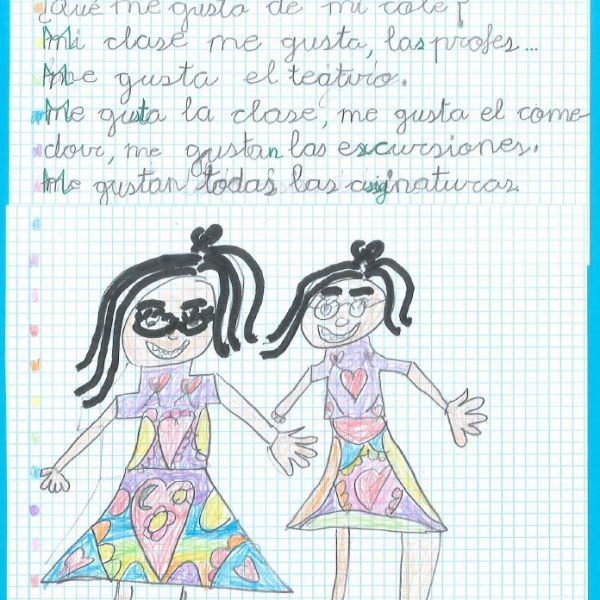 ¿Qué me gusta de mi cole?
Mi clase me gusta, las profes...
Me gusta el teatrio.
Me gusta la clase, me gusta el come
dour, me gustan las escursiones.
Me gustan todas las asignaturas